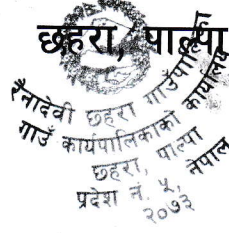 छहरा, पाल्पा
रैनादेवी छहरा गाउँपालिका
गाउँ कार्यपालिकाको कार्यालय
छहरा, पाल्पा
प्रदेश नं. ५, नेपाल
२०७३